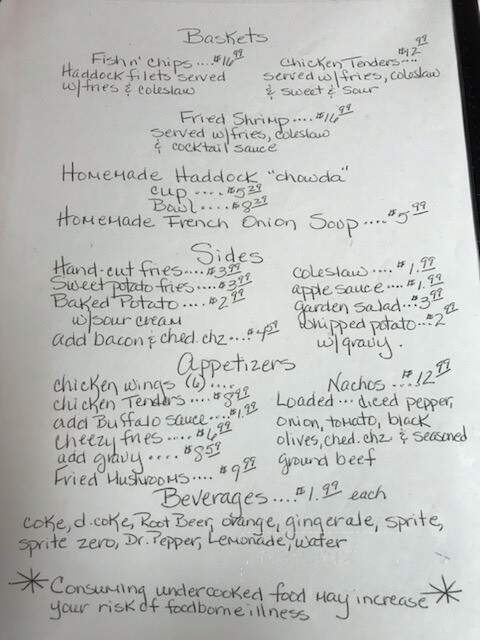 Baskets
Fish n' chips .... $16.99
Haddock filets served
w/fries & coleslaw
Chicken Tenders... $12.99
served w/fries, coleslaw
& sweet & sour
Fried Shrimp .... $16.99
served w/fries, coleslaw
& cocktail sauce
Homemade Haddock "chowda"
cup .... $5.29
Bowl .... $8.29
Homemade French Onion Soup .... $5.99
Sides
Hand-cut fries .... $3.99
Sweet potato fries .... $3.99
Baked Potato .... $2.99
w/sour cream
add bacon & ched. chz ... $4.59
coleslaw .... $1.99
apple sauce .... $1.99
garden salad... $3.99
whipped potato... $2.99
w/gravy.
Appetizers
chicken wings (6) ....
chicken Tenders .... $8.99
add Buffalo sauce... $1.99
cheezy fries .... $6.99
add gravy .... $8.59
Fried Mushrooms .... $9.99
Nachos .... $12.99
Loaded... diced pepper,
onion, tomato, black
olives, ched. chz & seasoned
ground beef
Beverages .... $1.99 each
coke, d.coke, Root Beer, orange, gingerale, sprite,
sprite zero, Dr. Pepper, Lemonade, water
Consuming undercooked food may increase
your risk of foodborne illness